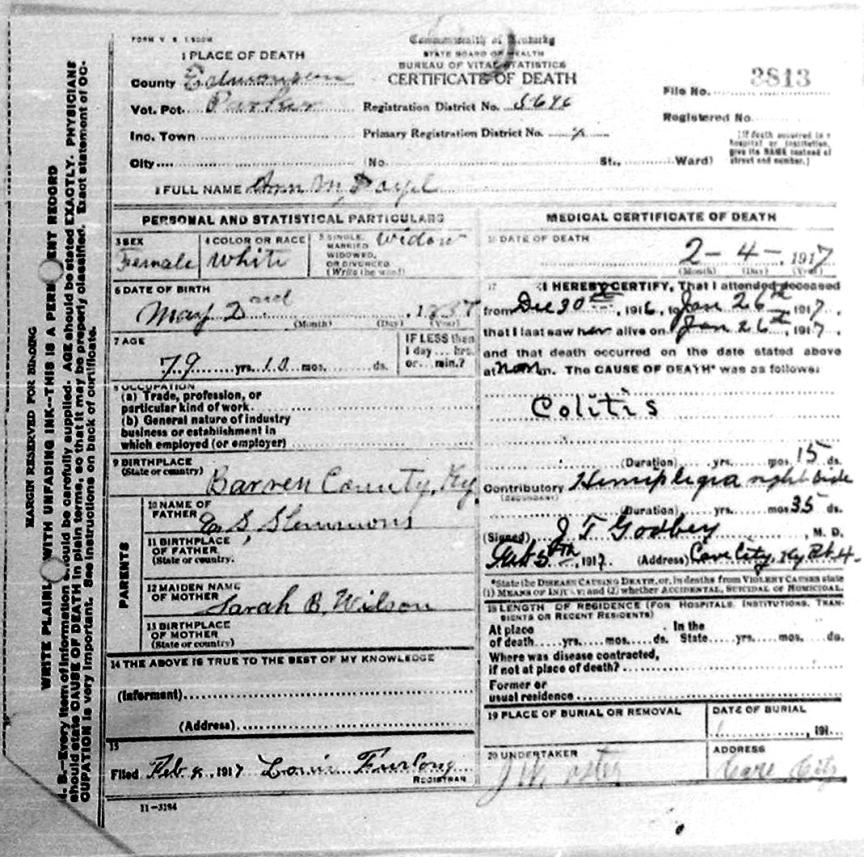 FORM V. S. 1
1 PLACE OF DEATH
County Edmonson
Vot. Pct. Parker
Inc. Town
City
Commonwealth of Kentucky
STATE BOARD OF HEALTH
BUREAU OF VITAL STATISTICS
CERTIFICATE OF DEATH
Registration District No.
Primary Registration District No.
(No. St., Ward)
File No. 3813
Registered No.
[If death occurred in a
hospital or institution,
give its NAME instead of
street and number.]
2 FULL NAME Ann M.
PERSONAL AND STATISTICAL PARTICULARS
3 SEX
Female
4 COLOR OR RACE
White
5 SINGLE,
MARRIED,
WIDOWED,
OR DIVORCED
(Write the word)
Widow
6 DATE OF BIRTH
May 2nd, 1837
(Month) (Day) (Year)
7 AGE
79 yrs. 10 mos. ds.
IF LESS than
1 day hrs.
or min.?
8 OCCUPATION
(a) Trade, profession, or
particular kind of work
(b) General nature of industry
business or establishment in
which employed (or employer)
9 BIRTHPLACE
(State or country)
Barren County, Ky
PARENTS
10 NAME OF
FATHER
E S, Slemmons
11 BIRTHPLACE
OF FATHER
(State or country.
12 MAIDEN NAME
OF MOTHER
Sarah B. Wilson
13 BIRTHPLACE
OF MOTHER
(State or country)
14 THE ABOVE IS TRUE TO THE BEST OF MY KNOWLEDGE
(Informant)
(Address)
15
Filed Feb 8, 1917 Louis Furlong
REGISTRAR
11-3184
MEDICAL CERTIFICATE OF DEATH
16 DATE OF DEATH
2-4-, 1917
(Month) (Day) (Year)
17 I HEREBY CERTIFY, That I attended deceased
from Dec 30th, 1916, to Jan 26th 1917,
that I last saw her alive on Jan 26th, 1917
and that death occurred on the date stated above
at noon m. The CAUSE OF DEATH* was as follows:
Colitis
(Duration) yrs. mos 15 ds.
Contributory Hemiplegia right side
(SECONDARY)
(Duration) yrs. mos 35 ds.
(Signed) J T Godbey, M. D.
Feb 5th, 1917 (Address) Cave City, Ky Rt 4.
*State the DISEASE CAUSING DEATH, or, in deaths from VIOLENT CAUSES state
(1) MEANS OF INJURY; and (2) whether ACCIDENTAL, SUICIDAL OR HOMICIDAL.
18 LENGTH OF RESIDENCE (FOR HOSPITALS, INSTITUTIONS, TRANSIENTS
OR RECENT RESIDENTS)
At place In the
of death yrs. mos. ds. State yrs. mos. ds.
Where was disease contracted,
if not at place of death?
Former or
usual residence
19 PLACE OF BURIAL OR REMOVAL
DATE OF BURIAL
, 191
20 UNDERTAKER
ADDRESS
Cave City
MARGIN RESERVED FOR BINDING
WRITE PLAINLY WITH UNFADING INK—THIS IS A PERMANENT RECORD
N. B.—Every item of information should be carefully supplied. AGE should be stated EXACTLY. PHYSICIANS
should state CAUSE OF DEATH in plain terms, so that it may be properly classified. Exact statement of OC-
CUPATION is very important. See instructions on back of certificate.